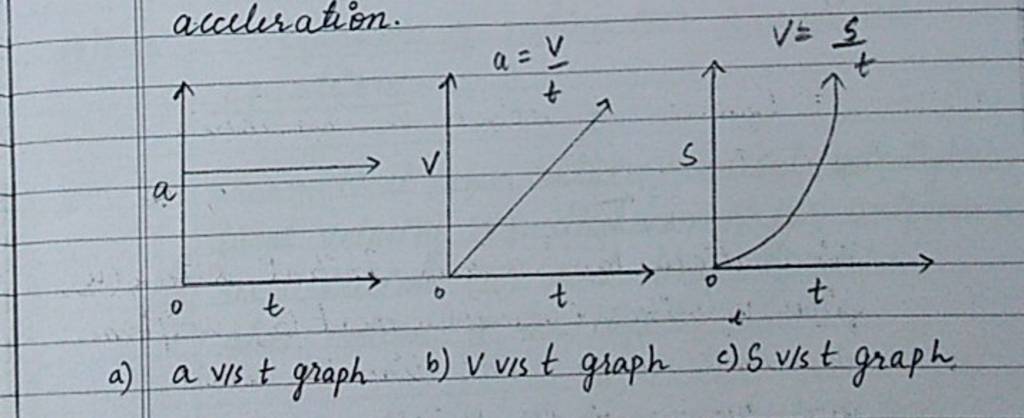 acceleration.
a = V/t
V = S/t
a
V
S
o t
o t
o t
a) a v/s t graph b) V v/s t graph c) S v/s t graph.